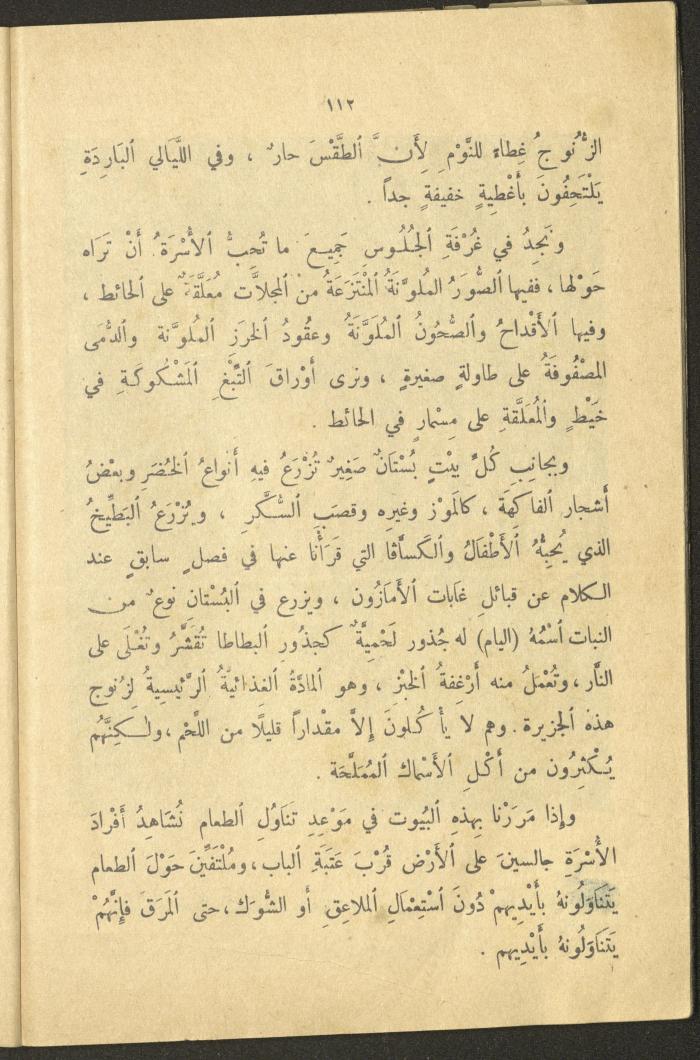 ١١٢
الزُّنُوجُ غِطاءً للنَّوْمِ لِأَنَّ ٱلطَّقْسَ حارٌ ، وفي اللَّيَالي ٱلبَارِدَةِ
يَلْتَحِفُونَ بأَغْطِيةٍ خفيفةٍ جداً .
ونَجدُ في غُرْفَةِ ٱلجُلُوسِ جَمِيعَ ما تُحِبُّ ٱلأُسْرَةُ أَنْ تَرَاه
حَوْلها ، ففيها ٱلصُّوَرُ المُلوَّنَةُ ٱلمُنْتَزَعَةُ منَ ٱلمجلاَّت مُعَلَّقَةً على ٱلحائط ،
وفيها ٱلأَقْداحُ وٱلصُّحُونُ ٱلمُلَوَّنَةُ وعقُودُ ٱلخَرَزِ ٱلملُوَّنة وٱلدُّمَى
المصْفُوفَةُ على طاولةٍ صغيرةٍ ، ونرى أَوْراقَ ٱلتِّبْغِ ٱلمَشْكُوكَةِ في
خَيْطٍ وٱلمُعَلَّقةِ على مِسْمارٍ في الحائط .
وبجانِبِ كُلِّ بيْتٍ بُسْتَانٌ صَغِيرٌ تُزْرَعُ فيهِ أَنواعُ ٱلخُضَرِ وبعْضُ
أَشجار ٱلفاكهَة ، كالمَوْز وغيرِه وقصَبِ ٱلسُّكَّرِ ، ويُزْرَعُ ٱلبَطِّيخُ
الذي يُحِبُّهُ ٱلأَطْفَالُ وٱلكَسافَا التي قَرَأْنا عنها في فصلٍ سابقٍ عند
الكلام عن قبائلِ غابات ٱلأَمازُون ، ويزرع في ٱلبُسْتانِ نوعٌ من
النبات ٱسْمُهُ (اليام) له جُذور لَحْمِيَّةٌ كجذُورِ ٱلبطاطا تُقَشَّرُ وتُغْلَى على
النَّار ، وتُعْمَلُ منه أَرْغفةُ ٱلخبْزِ ، وهو ٱلمادَّةُ ٱلغِذائيَّةُ ٱلرَّئيسيةُ لِزُنوج
هذه ٱلجزيرة . وهم لا يأْكُلونَ إِلاَّ مقْداراً قليلًا من اللَّحْم ، ولٰكِنَّهُم
يُكْثِرُون من أَكْلِ ٱلأَسْماك ٱلمُمَلَّحَة .
وإِذا مَرَرْنا بِهذهِ ٱلبُيوت في مَوْعِدِ تنَاوُلِ ٱلطعام نُشَاهِدُ أَفْرادَ
الأُسْرَةِ جالسينَ على ٱلأَرْضِ قُرْبَ عَتَبَةِ ٱلباب ، ومُلْتَفِّينَ حَوْلَ ٱلطعام
يَتَنَاوَلُونهُ بأَيْدِيهمْ دُونَ ٱسْتِعْمَالِ ٱلملاعِقِ أو الشُّوَك ، حتى ٱلمَرَقَ فإِنَّهُمْ
يَتَنَاوَلُونهُ بأَيْدِيهم .